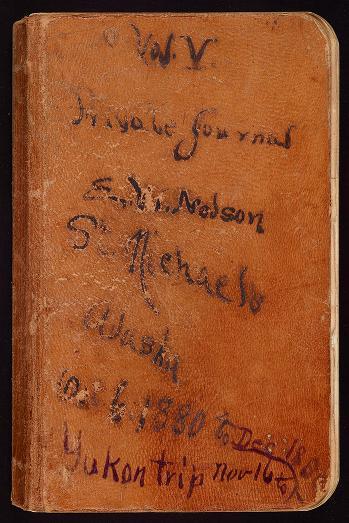 Vol. V.
Private Journal
E. W. Nelson
St Michaels
Alaska
Oct 6. 1880 to Dec
Yukon trip Nov 16 to